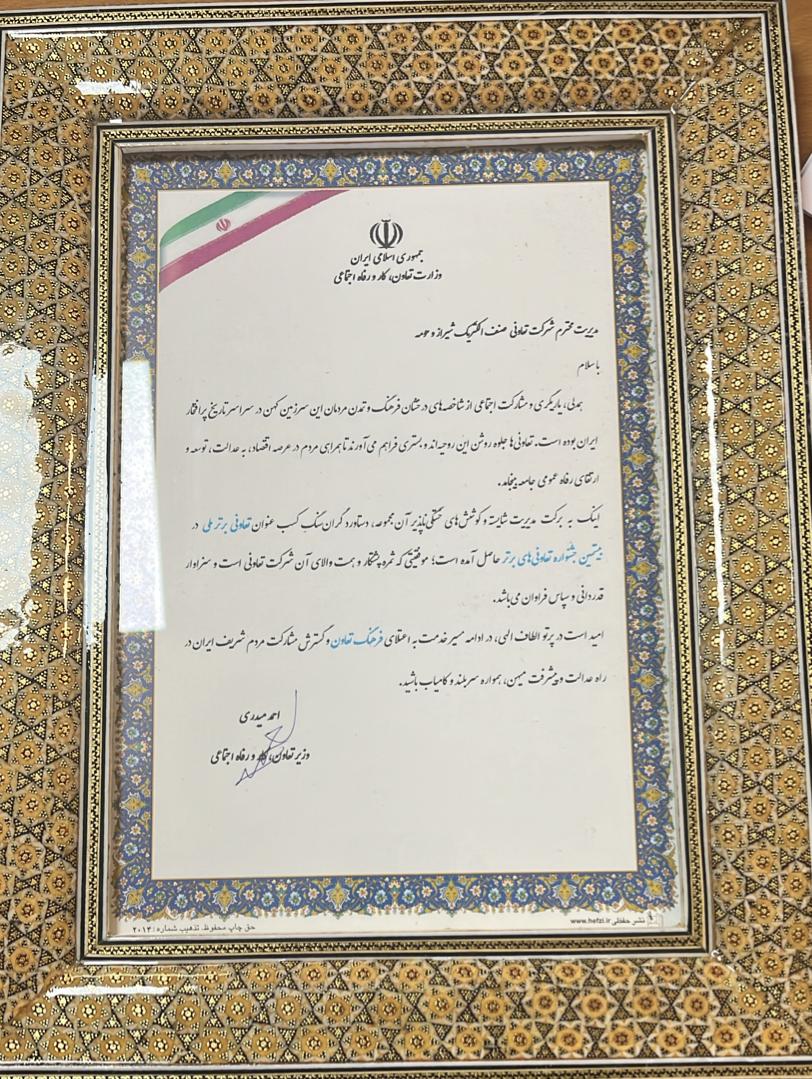 جمهوری اسلامی ایران
وزارت تعاون، کار و رفاه اجتماعی
مدیریت محترم شرکت تعاونی صنف الکتریک شیراز و حومه
با سلام
همدلی، یاریگری و مشارکت اجتماعی از شاخصه‌های درخشان فرهنگ و تمدن مردمان این سرزمین کهن در سراسر تاریخ پرافتخار
ایران بوده است. تعاونی‌ها جلوه روشن این روحیه‌اند و بستری فراهم می‌آورند تا همراهی مردم در عرصه اقتصاد، به عدالت، توسعه و
ارتقای رفاه عمومی جامعه بینجامد.
اینک به برکت مدیریت شایسته و کوشش‌های خستگی‌ناپذیر آن مجموعه، دستاورد گران‌سنگ کسب عنوان تعاونی برتر ملی در
بیستمین جشنواره تعاونی‌های برتر حاصل آمده است؛ موفقیتی که ثمره پشتکار و همت والای آن شرکت تعاونی است و سزاوار
قدردانی و سپاس فراوان می‌باشد.
امید است در پرتو الطاف الهی، در ادامه مسیر خدمت به اعتلای فرهنگ تعاون و گسترش مشارکت مردم شریف ایران در
راه عدالت و پیشرفت میهن، همواره سربلند و کامیاب باشید.
احمد میدری
وزیر تعاون، کار و رفاه اجتماعی
نشر حفظی www.hefzi.ir
حق چاپ محفوظ. تذهیب شماره: ۲۰۱۳